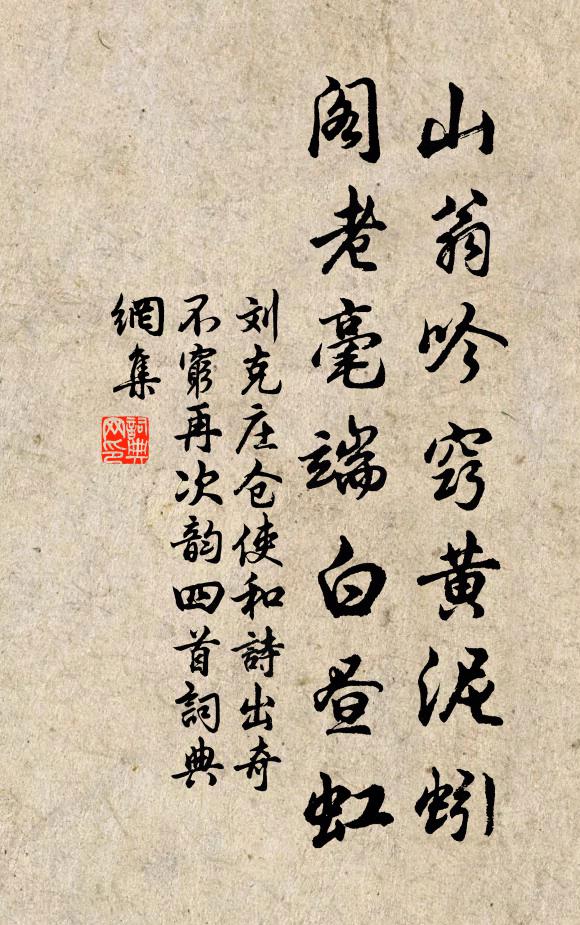 山翁吟窍黄泥蚓
阁老毫端白昼虹
刘克庄仓使和詩出奇
不窮再次韵四首詞典
網集
詞典
网印